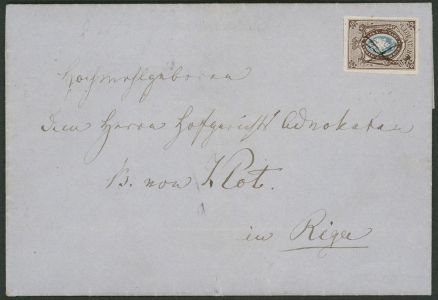 Hochwohlgeboren
dem Herrn Hofgerichts Advokaten
B. von Klot.
in Riga